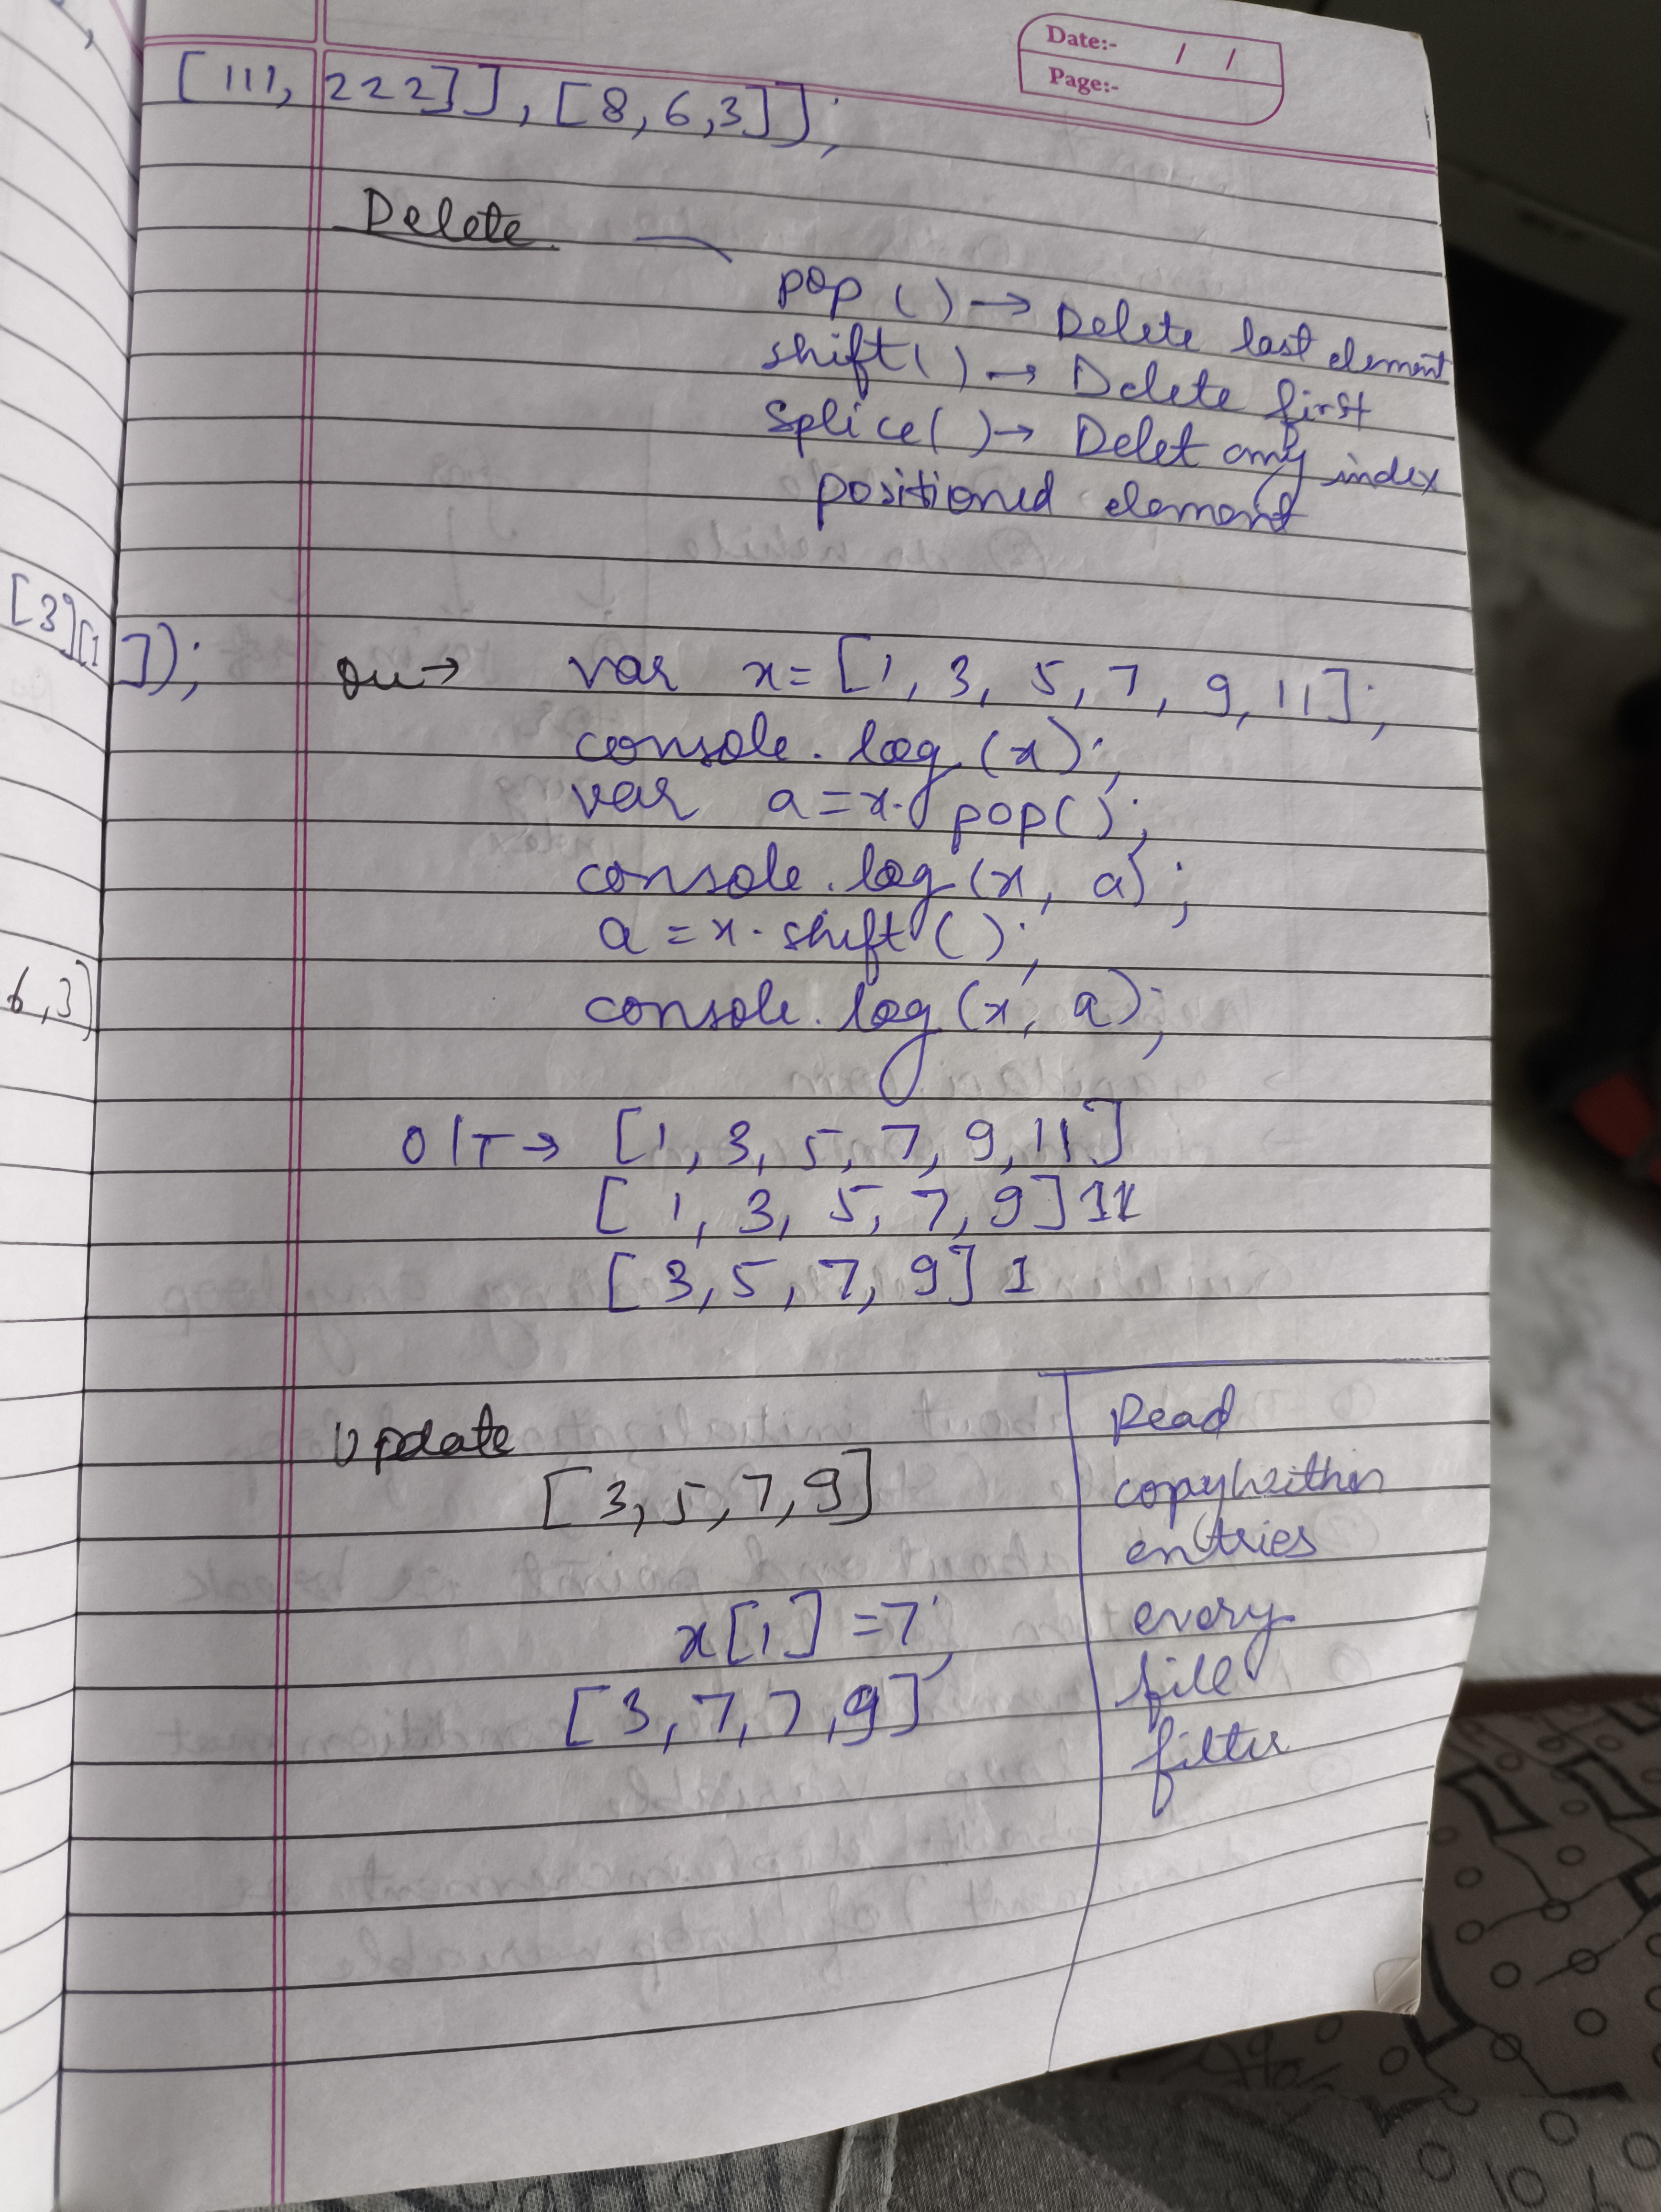 Date:- / /
Page:-
[111, 222]], [8, 6, 3]];
Delete
pop () → Delete last element
shift() → Delete first
Splice() → Delet any index
positioned element
[3][1]);
var x = [1, 3, 5, 7, 9, 11];
console.log(x);
var a = x.pop();
console.log(x, a);
a = x.shift();
console.log(x, a);
6,3]
O/T → [1, 3, 5, 7, 9, 11]
[1, 3, 5, 7, 9] 11
[3, 5, 7, 9] 1
Update
[3, 5, 7, 9]
x[1] = 7;
[3, 7, 7, 9]
Read
copywithin
entries
every
fill
filter